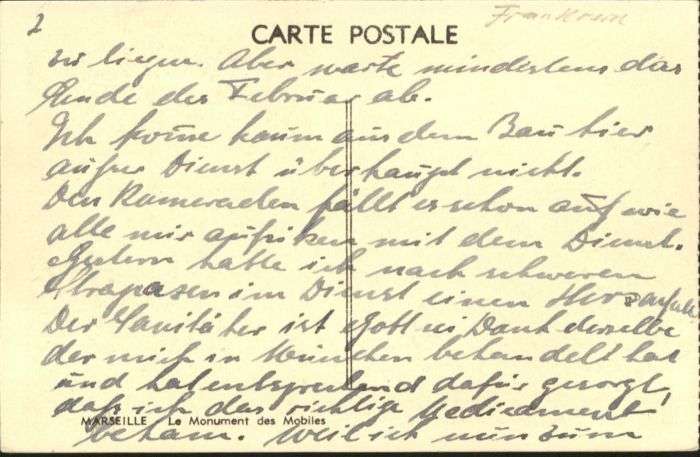 2
Frankreich
CARTE POSTALE
zu liegen. Aber warte mindestens das
Ende des Februar ab.
Ich komme kaum aus dem Bau hier
außer Dienst überhaupt nicht.
Den Kameraden fällt es schon auf wie
alle mir mit dem Dienst.
Gestern hatte ich nach schweren
Strapazen im Dienst einen Herzanfall
Der Sanitäter ist Gott sei Dank derselbe
der mich in München behandelt hat
und hat entsprechend dafür gesorgt,
daß ich das richtige Medicament
MARSEILLE Le Monument des Mobiles
bekam. Weil ich nun zum